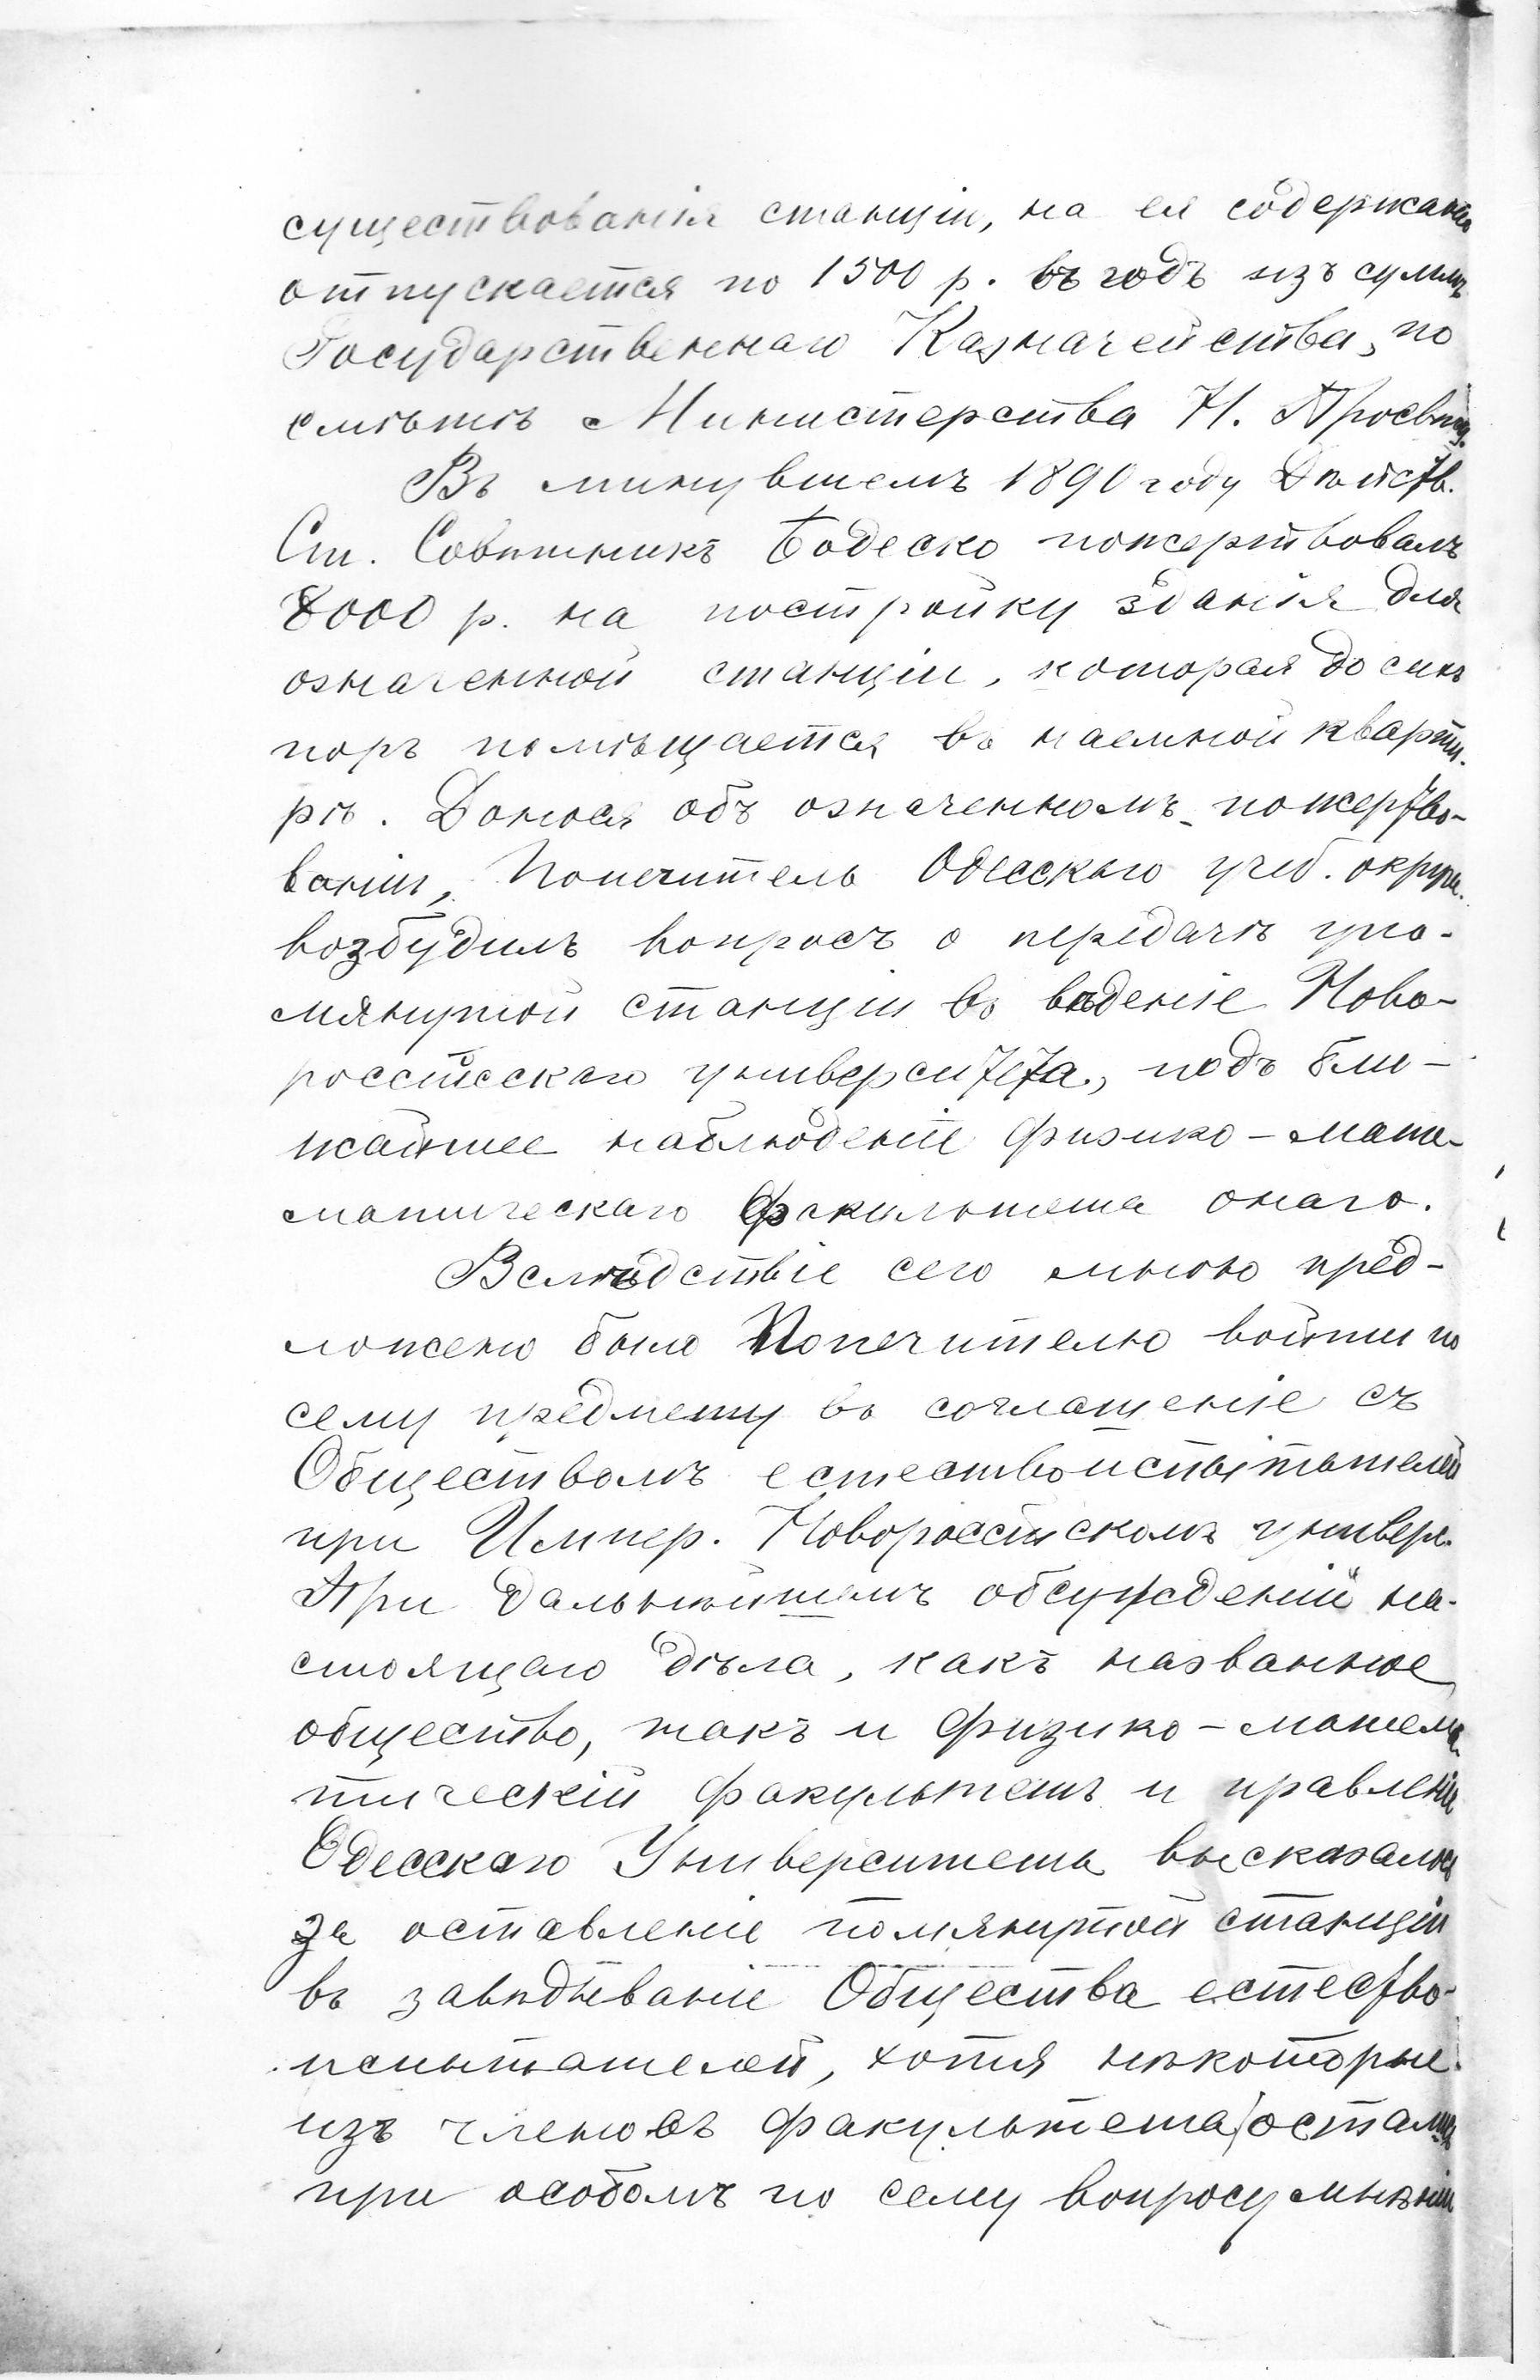 существованія станціи, на ея содержаніе
отпускается по 1500 р. въ годъ изъ суммъ
Государственнаго Казначейства, по
смѣтѣ Министерства Н. Просвѣщ.
Въ минувшемъ 1890 году Дѣйств.
Ст. Совѣтникъ Бодеско пожертвовалъ
8000 р. на постройку зданія для
означенной станціи, которая до сихъ
поръ помѣщается въ наемной кварти-
рѣ. Донося объ означенномъ пожертво-
ваніи, Попечитель Одесскаго учеб. округа
возбудилъ вопросъ о передачѣ упо-
мянутой станціи въ вѣденіе Ново-
россійскаго университета, подъ бли-
жайшее наблюденіе физико-мате-
матическаго факультета онаго.
Вслѣдствіе сего мною пред-
ложено было Попечителю войти по
сему предмету въ соглашеніе съ
Обществомъ естествоиспытателей
при Импер. Новороссійскомъ универ.
При дальнѣйшемъ обсужденіи на-
стоящаго дѣла, какъ названное
общество, такъ и физико-матема-
тическій факультетъ и правленіе
Одесскаго Университета высказались
за оставленіе помянутой станціи
въ завѣдываніе Общества естество-
испытателей, хотя нѣкоторые
изъ членовъ факультета остались
при особомъ по сему вопросу мнѣніи